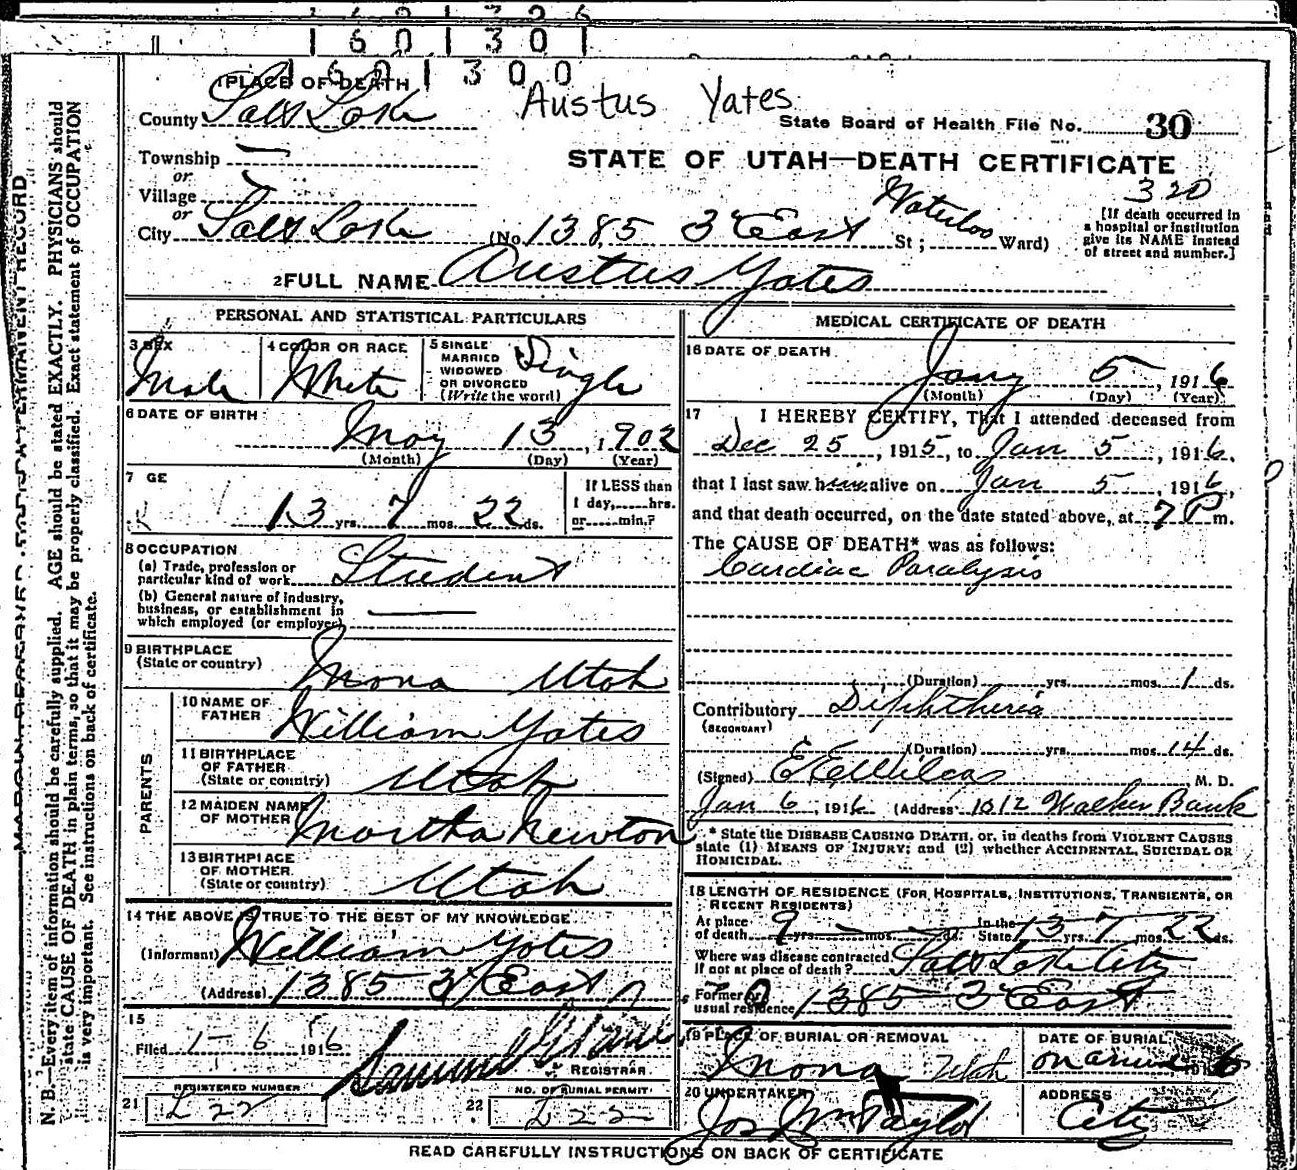 1601301
1601300
1 PLACE OF DEATH
Austus Yates
County Salt Lake
State Board of Health File No. 30
Township —
STATE OF UTAH—DEATH CERTIFICATE
or
Village
320
or
City Salt Lake (No. 1385 3rd East St; Waterloo Ward)
[If death occurred in a hospital or institution give its NAME instead of street and number.]
2 FULL NAME Austus Yates
PERSONAL AND STATISTICAL PARTICULARS
3 SEX Male
4 COLOR OR RACE White
5 SINGLE MARRIED WIDOWED OR DIVORCED (Write the word) Single
6 DATE OF BIRTH May 13, 1902
(Month) (Day) (Year)
7 GE 13 yrs. 7 mos. 22 ds.
If LESS than 1 day,......hrs. or......min.?
8 OCCUPATION
(a) Trade, profession or particular kind of work Student
(b) General nature of industry, business, or establishment in which employed (or employer) —
9 BIRTHPLACE (State or country) Mona Utah
PARENTS
10 NAME OF FATHER William Yates
11 BIRTHPLACE OF FATHER (State or country) Utah
12 MAIDEN NAME OF MOTHER Martha Newton
13 BIRTHPLACE OF MOTHER. (State or country) Utah
14 THE ABOVE IS TRUE TO THE BEST OF MY KNOWLEDGE
(Informant) William Yates
(Address) 1385 3rd East
15
Filed 1-6 1916
Samuel
REGISTRAR
REGISTERED NUMBER
21 L22
NO. OF BURIAL PERMIT
22 L22
MEDICAL CERTIFICATE OF DEATH
16 DATE OF DEATH
Jany 5, 1916
(Month) (Day) (Year)
17 I HEREBY CERTIFY, That I attended deceased from
Dec 25, 1915, to Jan 5, 1916,
that I last saw him alive on Jan 5, 1916,
and that death occurred, on the date stated above, at 7 P m.
The CAUSE OF DEATH* was as follows:
Cardiac Paralysis
(Duration) yrs. mos. 1 ds.
Contributory Diphtheria
(SECONDARY)
(Duration) yrs. mos. 14 ds.
(Signed) E E Wilcox M. D.
Jan 6, 1916 (Address) 1012 Walker Bank
* State the DISEASE CAUSING DEATH, or, in deaths from VIOLENT CAUSES
state (1) MEANS OF INJURY; and (2) whether ACCIDENTAL, SUICIDAL OR
HOMICIDAL.
18 LENGTH OF RESIDENCE (FOR HOSPITALS, INSTITUTIONS, TRANSIENTS, OR
RECENT RESIDENTS)
At place of death 9 yrs. – mos. – ds. In the State 13 yrs. 7 mos. 22 ds.
Where was disease contracted if not at place of death? Salt Lake City
Former or usual residence 1385 3rd East
19 PLACE OF BURIAL OR REMOVAL Mona Utah
DATE OF BURIAL on 191 6
20 UNDERTAKER Jos Wm Taylor
ADDRESS City
READ CAREFULLY INSTRUCTIONS ON BACK OF CERTIFICATE
N. B.—Every item of information should be carefully supplied. AGE should be stated EXACTLY. PHYSICIANS should
state CAUSE OF DEATH in plain terms, so that it may be properly classified. Exact statement of OCCUPATION
is very important. See instructions on back of certificate.